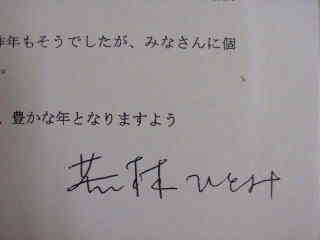 昨年もそうでしたが、みなさんに個
。
、豊かな年となりますよう
若林ひとみ